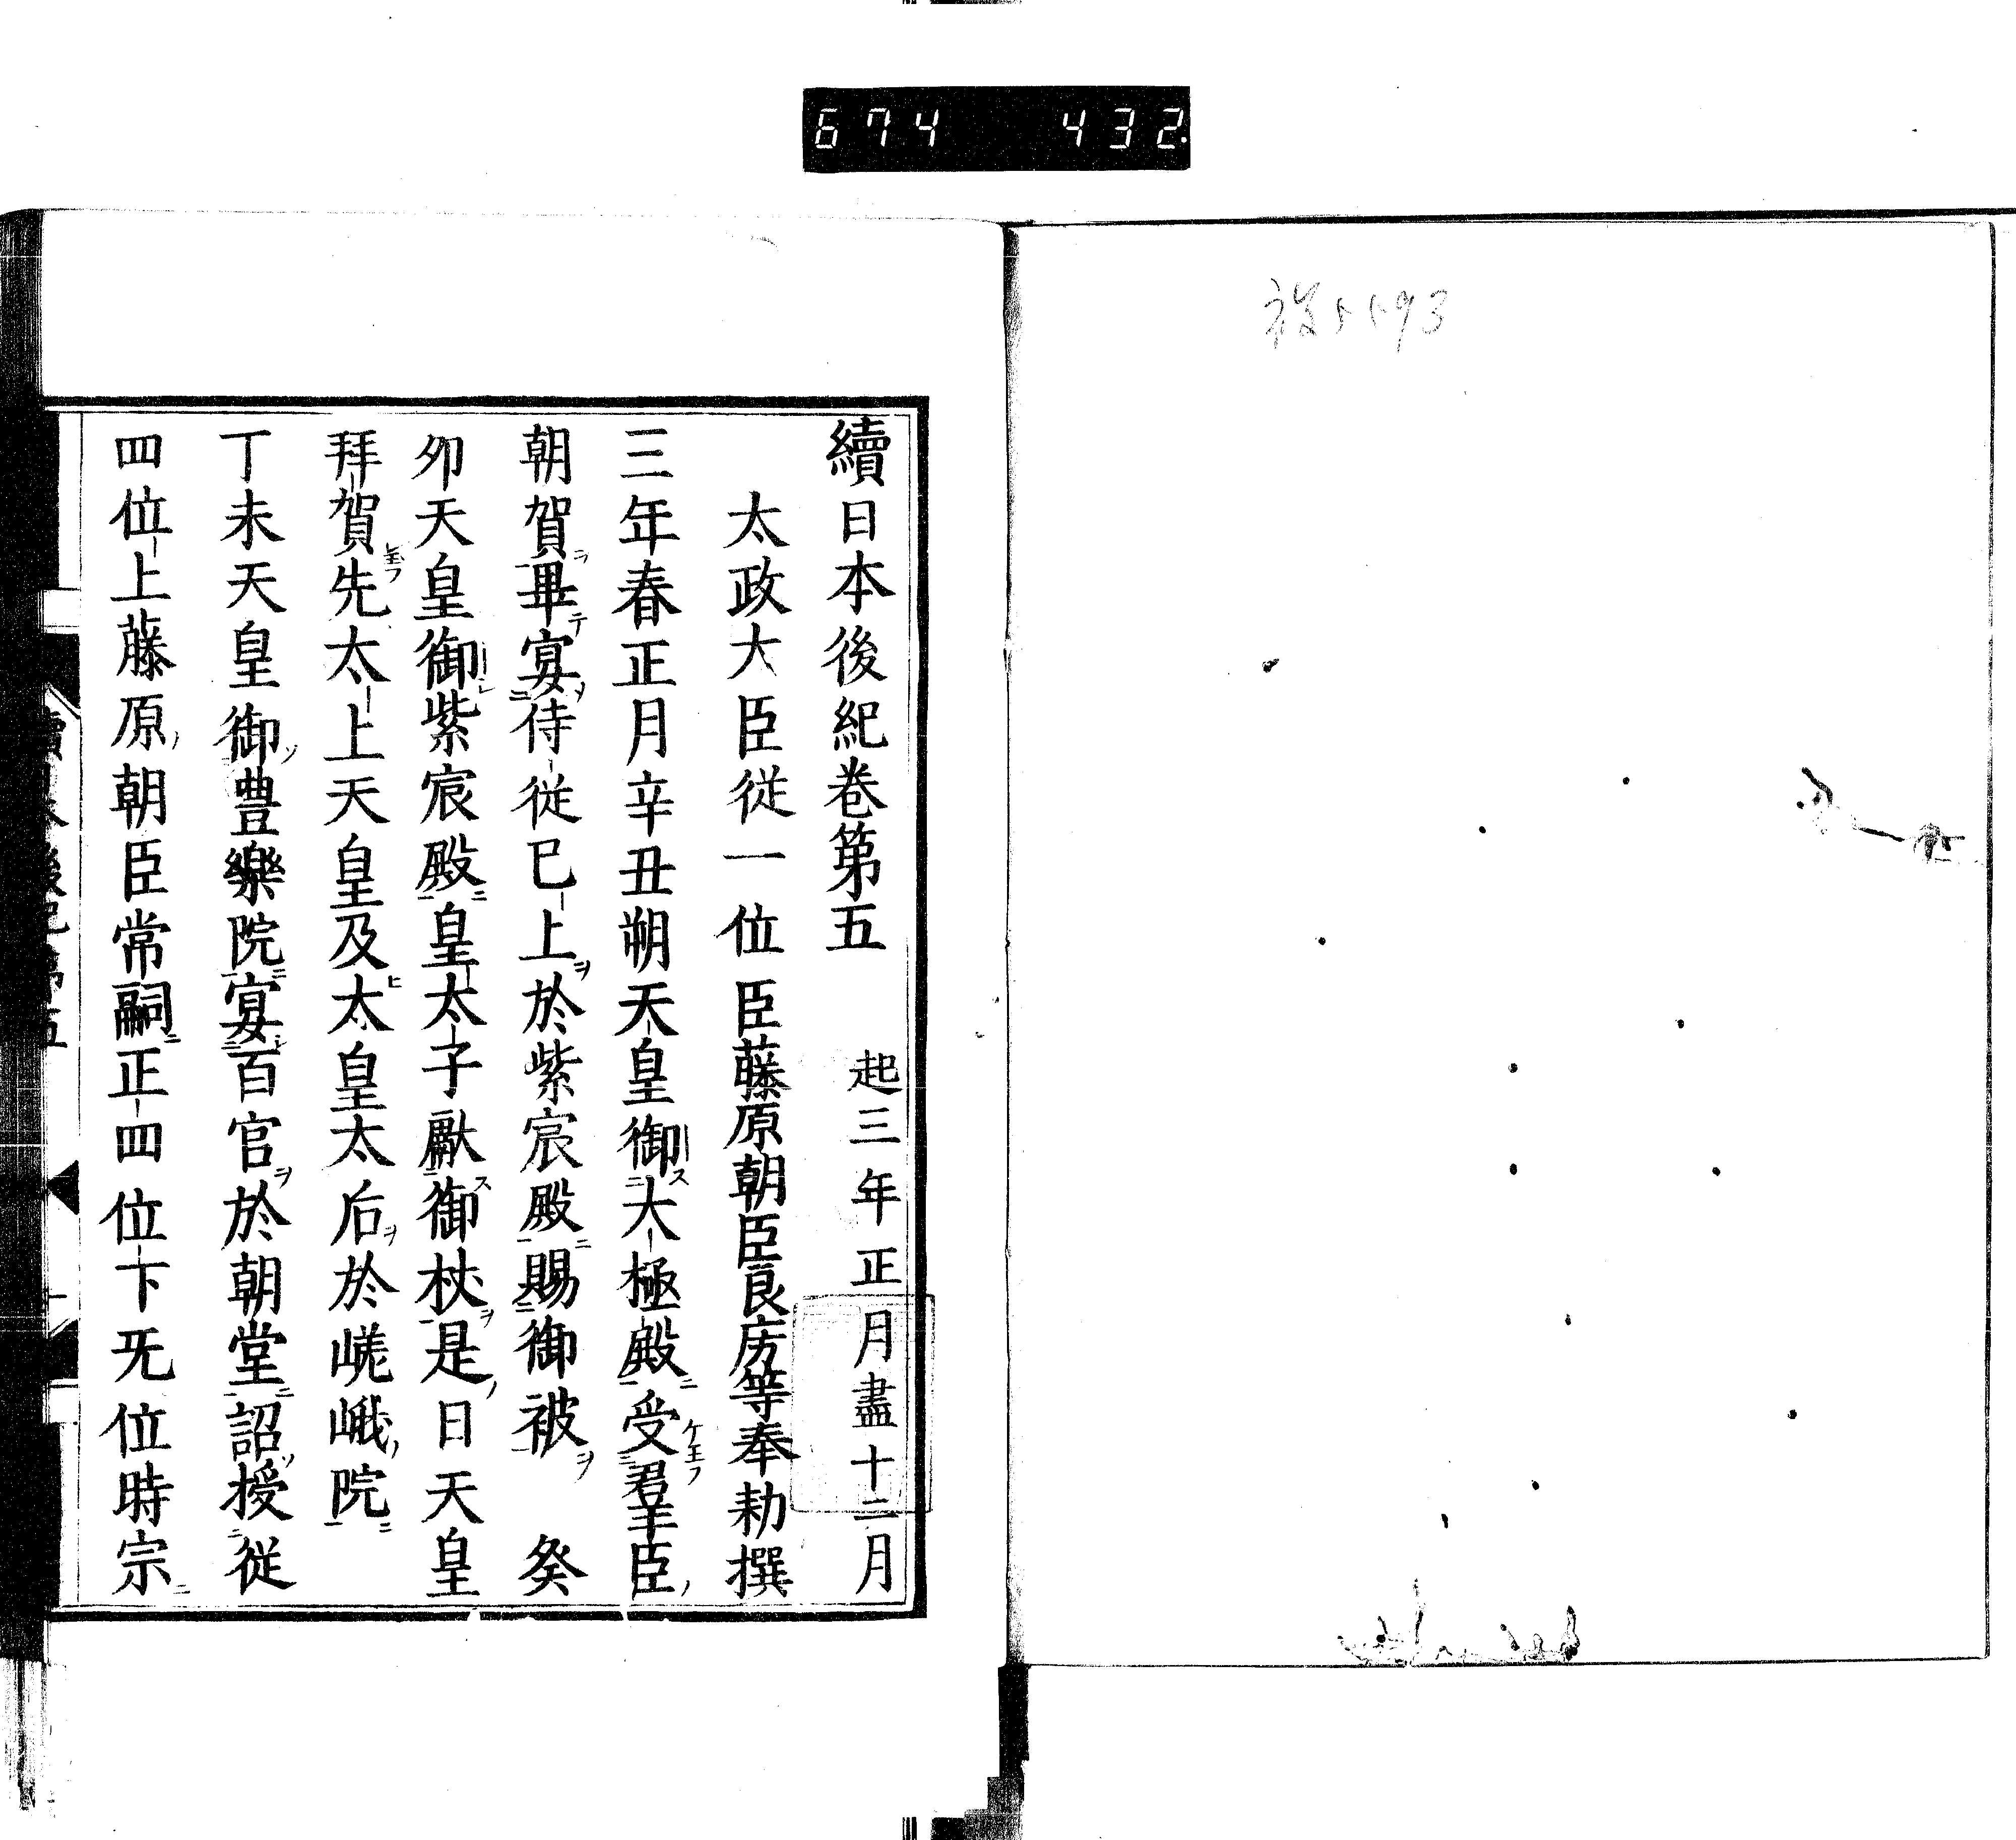 674 432
5593
續日本後紀巻第五 起三年正月盡十二月
太政大臣従一位臣藤原朝臣良房等奉勅撰
三年春正月辛丑朔天皇御大極殿受羣臣
朝賀畢宴侍従已上於紫宸殿賜御被 癸
卯天皇御紫宸殿皇太子獻御杖是日天皇
拜賀先太上天皇及太皇太后於嵯峨院
丁未天皇御豊樂院宴百官於朝堂詔授従
四位上藤原朝臣常嗣正四位下无位時宗